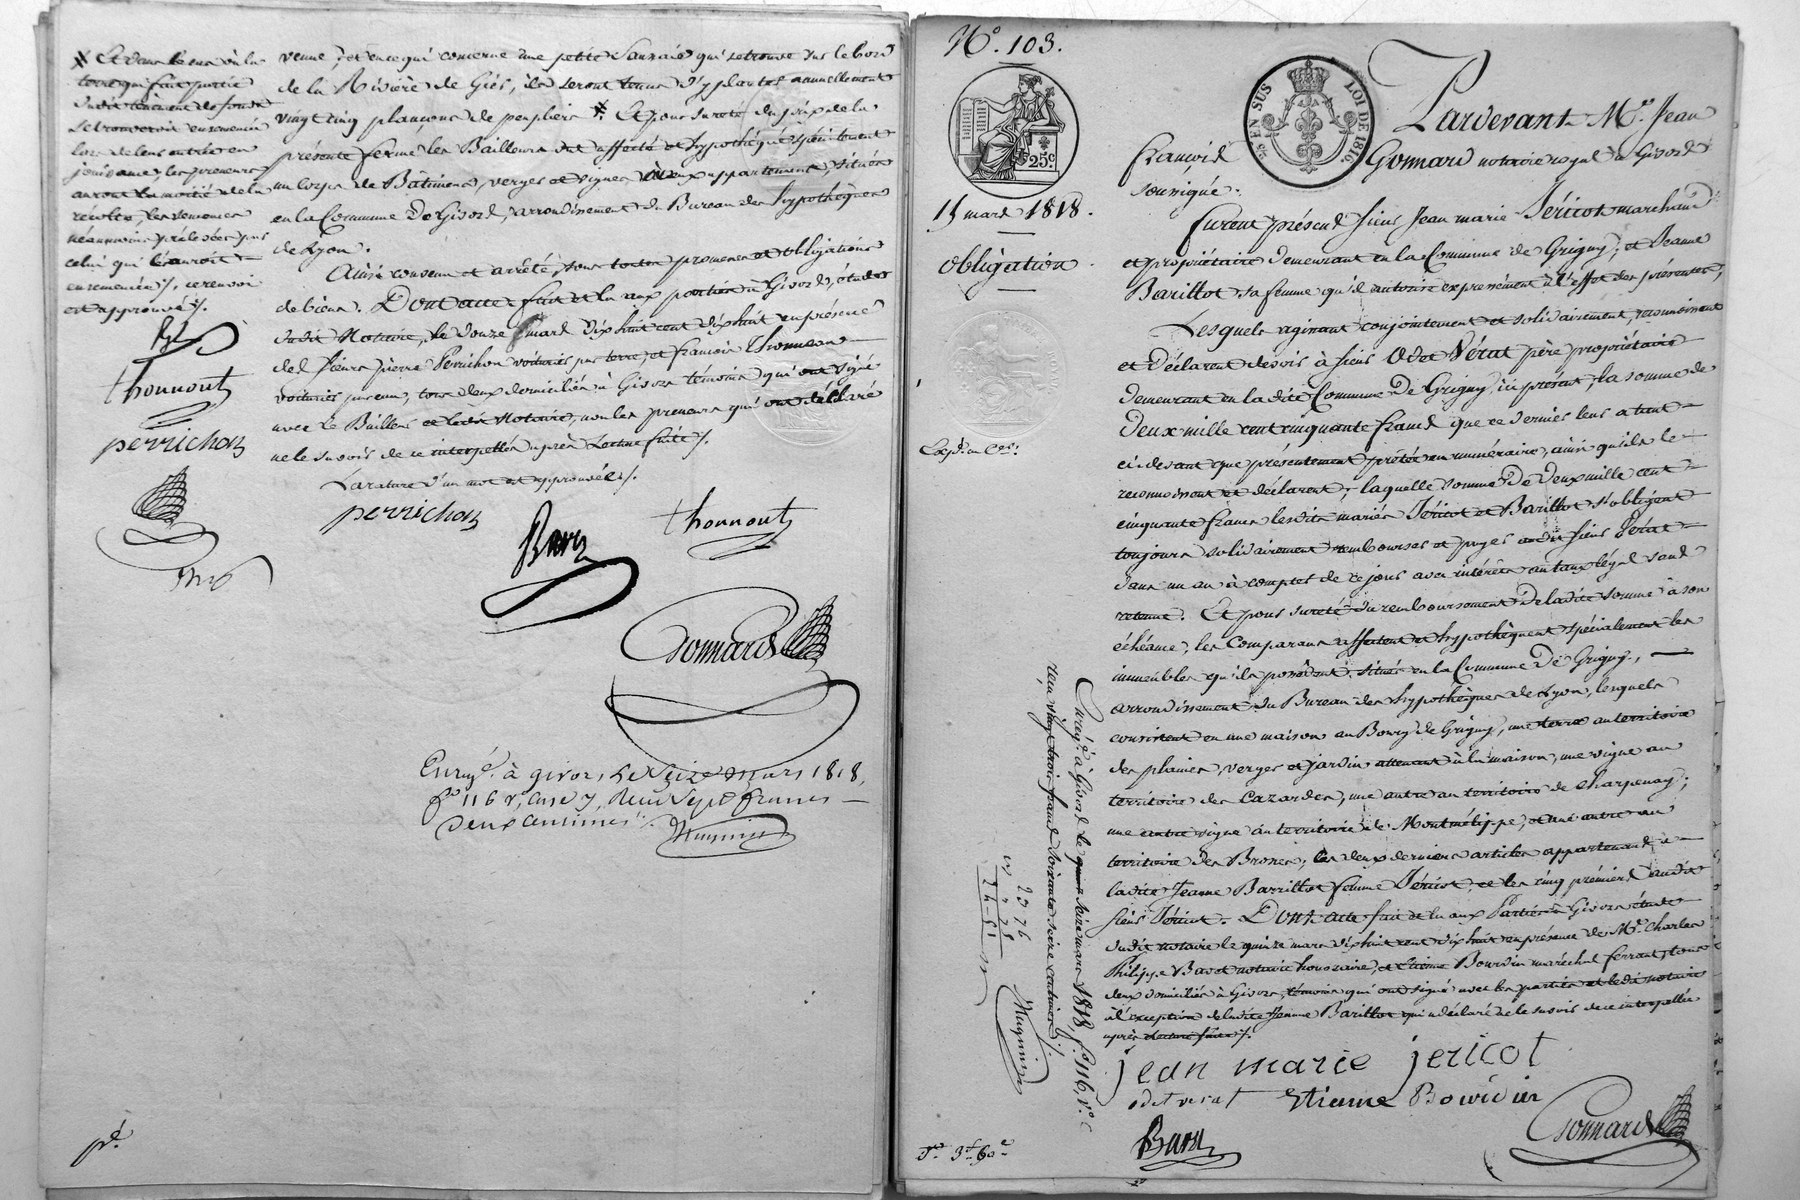 ※ Et dans le cas où la
terre qui fait partie
dudit tènement de fonds
se trouveroit ensemencée
lors de leur entrée en
jouissance, les preneurs
auront la moitié de la
récolte, les semences
néanmoins prélevées par
celui qui l'auroit
ensemencée ./. ce renvoi
est approuvé ./.
thonnout
perrichon
venue, et en ce qui concerne une petite Saunaie qui se trouve sur le bord
de la Rivière de Giés, ils seront tenus d'y planter annuellement
vingt cinq plançons de peupliers ※ Et pour sureté du prix de la
présente ferme les Bailleurs ont affecté et hypothéqué spécialement
un corps de Bâtimens, verger et vignes à eux appartenant, situés
en la Commune de Givors, arrondissement du Bureau des hypothèques
de Lyon.
Ainsi convenu et arrêté, sous toutes promesses et obligations
de biens. Dont acte fait et lu aux parties à Givors, étude
dudit Notaire, le douze mars dix huit cent dix huit en présence
de Sieurs pierre Perrichon voiturier par terre, et françois Thonnout
voiturier par eau, tous deux domiciliés à Givors témoins qui ont signé
avec le Bailleur et ledit Notaire, non les preneurs qui ont déclaré
ne le savoir de ce interpellés après Lecture faite ./.
La rature d'un mot est approuvée ./.
perrichon
thonnout
Gonnard
Enregé. à givors, le seize mars 1818,
fo. 116 ro, case 7, Reçu sept francs
deux centimes ./.
pé.
No. 103.
25c.
EN SUS
LOI DE 1816.
15 mars 1818.
Obligation
Pardevant Me. Jean
françois Gonnard notaire royal à Givors
soussigné.
furent présens sieur Jean marie Jéricot marchand
et propriétaire demeurant en la Commune de Grigny; et Jeanne
Barillot sa femme qu'il autorise expressément à l'effet des présentes,
Lesquels agissant conjointement et solidairement, reconnoissent
et déclarent devoir à sieur Odet Vérat père propriétaire
demeurant en la dite Commune de Grigny, ici présent, la somme de
Deux mille cent cinquante francs que ce dernier leur a tant
ci-devant que présentement prêtée en numéraire, ainsi qu'ils le
reconnoissent et déclarent; laquelle somme de Deux mille cent
cinquante francs lesdits mariés Jéricot et Barillot s'obligent
toujours solidairement rembourser et payer audit sieur Vérat
dans un an à compter de ce jour avec intérêts au taux légal sans
retenue. Et pour sureté du remboursement de ladite somme à son
échéance, les comparans affectent et hypothèquent spécialement les
immeubles qu'ils possèdent situés en la Commune De Grigny,
arrondissement du Bureau des hypothèques de Lyon, lesquels
consistent en une maison au Bourg de Grigny, une terre au territoire
des plaines, verger et jardin attenant à la maison, une vigne au
territoire des Cazardes, une autre au territoire de charpenay;
une autre vigne au territoire de Montmélippe, et une autre au
territoire des Brosses, les deux derniers articles appartenans à
ladite Jeanne Barillot femme Jéricot, et les cinq premiers audit
sieur Jéricot. Dont acte fait et lu aux Parties à Givors étude
dudit notaire le quinze mars dix huit cent dix huit en présence de Me. Charles
Philippe Bavet notaire honoraire, et Etienne Bourdin maréchal ferrant, tous
deux domiciliés à Givors, témoins qui ont signé avec les parties et ledit notaire
à l'exception de ladite Jeanne Barillot qui a déclaré ne le savoir de ce interpellée
après lecture faite ./.
jean marie jericot
odet verat Etienne Bourdin
Gonnard
Enregé. à Givors le seize mars 1818, fo. 116, Vo. C
reçu vingt trois francs soixante seize centimes ./.
23 76